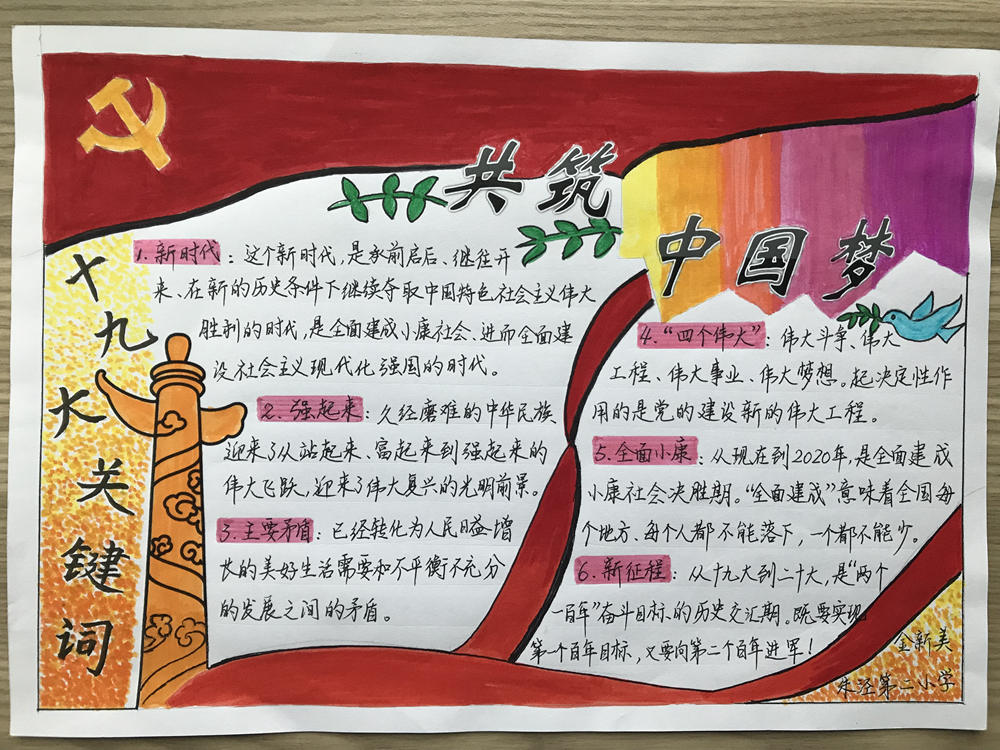 共筑
中国梦
十九大关键词
1.新时代：这个新时代，是承前启后、继往开
来、在新的历史条件下继续夺取中国特色社会主义伟大
胜利的时代，是全面建成小康社会、进而全面建
设社会主义现代化强国的时代。
2.强起来：久经磨难的中华民族
迎来了从站起来、富起来到强起来的
伟大飞跃，迎来了伟大复兴的光明前景。
3.主要矛盾：已经转化为人民日益增
长的美好生活需要和不平衡不充分
的发展之间的矛盾。
4.“四个伟大”：伟大斗争、伟大
工程、伟大事业、伟大梦想。起决定性作
用的是党的建设新的伟大工程。
5.全面小康：从现在到2020年，是全面建成
小康社会决胜期。“全面建成”意味着全国每
个地方、每个人都不能落下，一个都不能少。
6.新征程：从十九大到二十大，是“两个
一百年”奋斗目标的历史交汇期。既要实现
第一个百年目标，又要向第二个百年进军！
金新美
朱泾第二小学